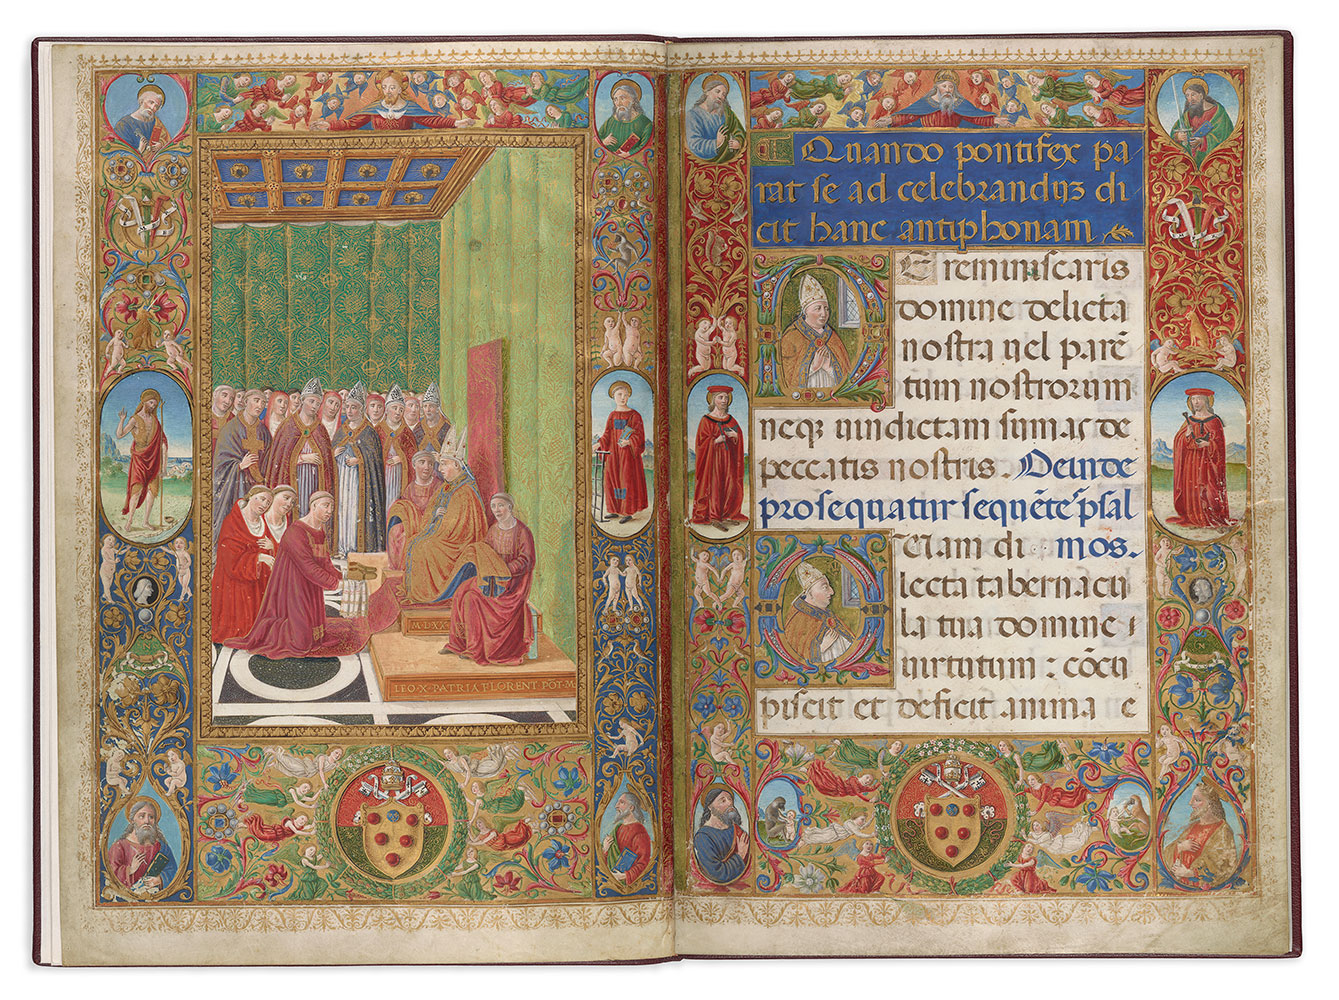 M.D.XX
LEO·X·PATRIA FLORENT POT·M
Quando pontifex pa
rat se ad celebrandũ di
cit hanc antiphonam
E reminiscaris
domine delicta
nostra vel parẽ
tum nostrorum
neqꝫ vindictam sumas de
peccatis nostris. Deinde
prosequatur sequẽtes psal
mos.
lecta tabernacu
la tua domine
virtutum : cõcu
piscit et deficit anima